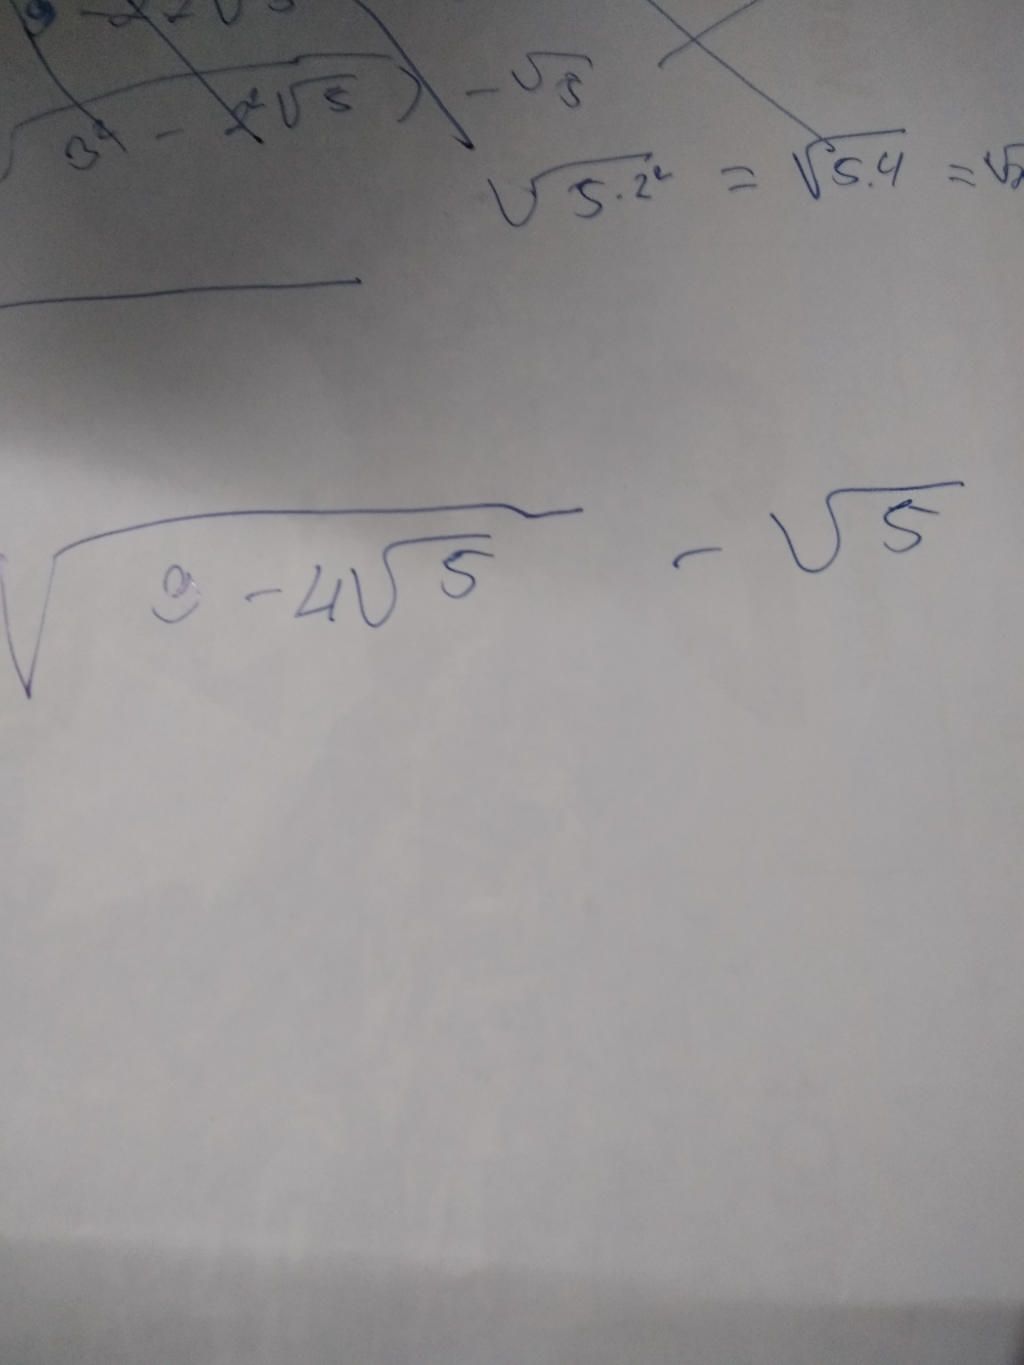 √(3⁴ - 2²√5) - √5
√(5.2²) = √(5.4) = √2
√(9 - 4√5) - √5